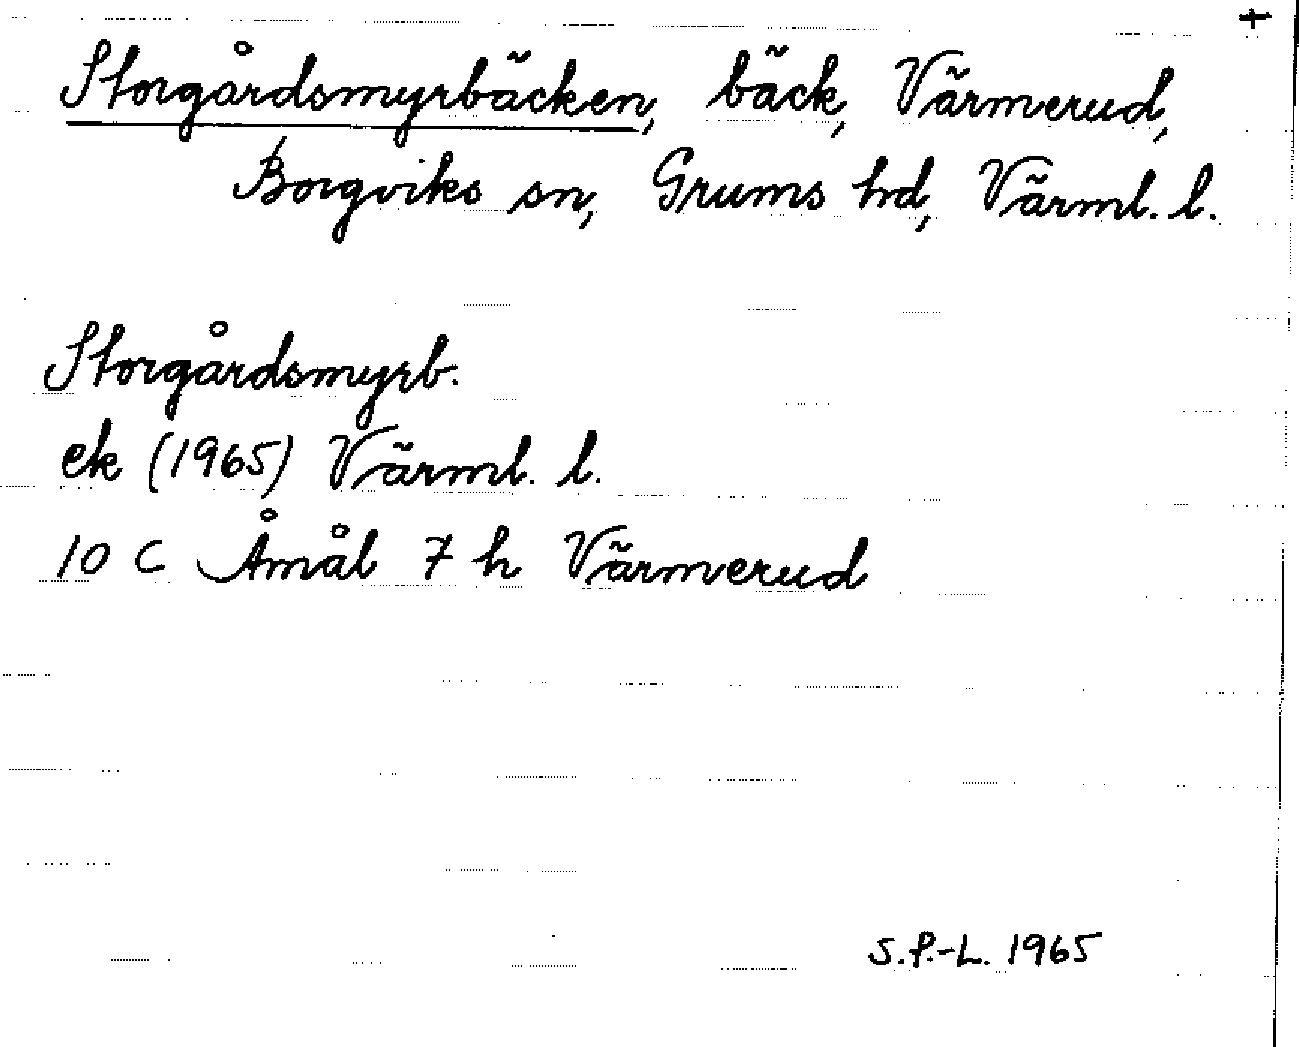 +
Storgårdsmyrbäcken, bäck, Värmerud,
Borgviks sn, Grums hd, Värml. l.
Storgårdsmyrb.
ek (1965) Värml. l.
10 C Åmål 7 h Värmerud
S.P.-L. 1965